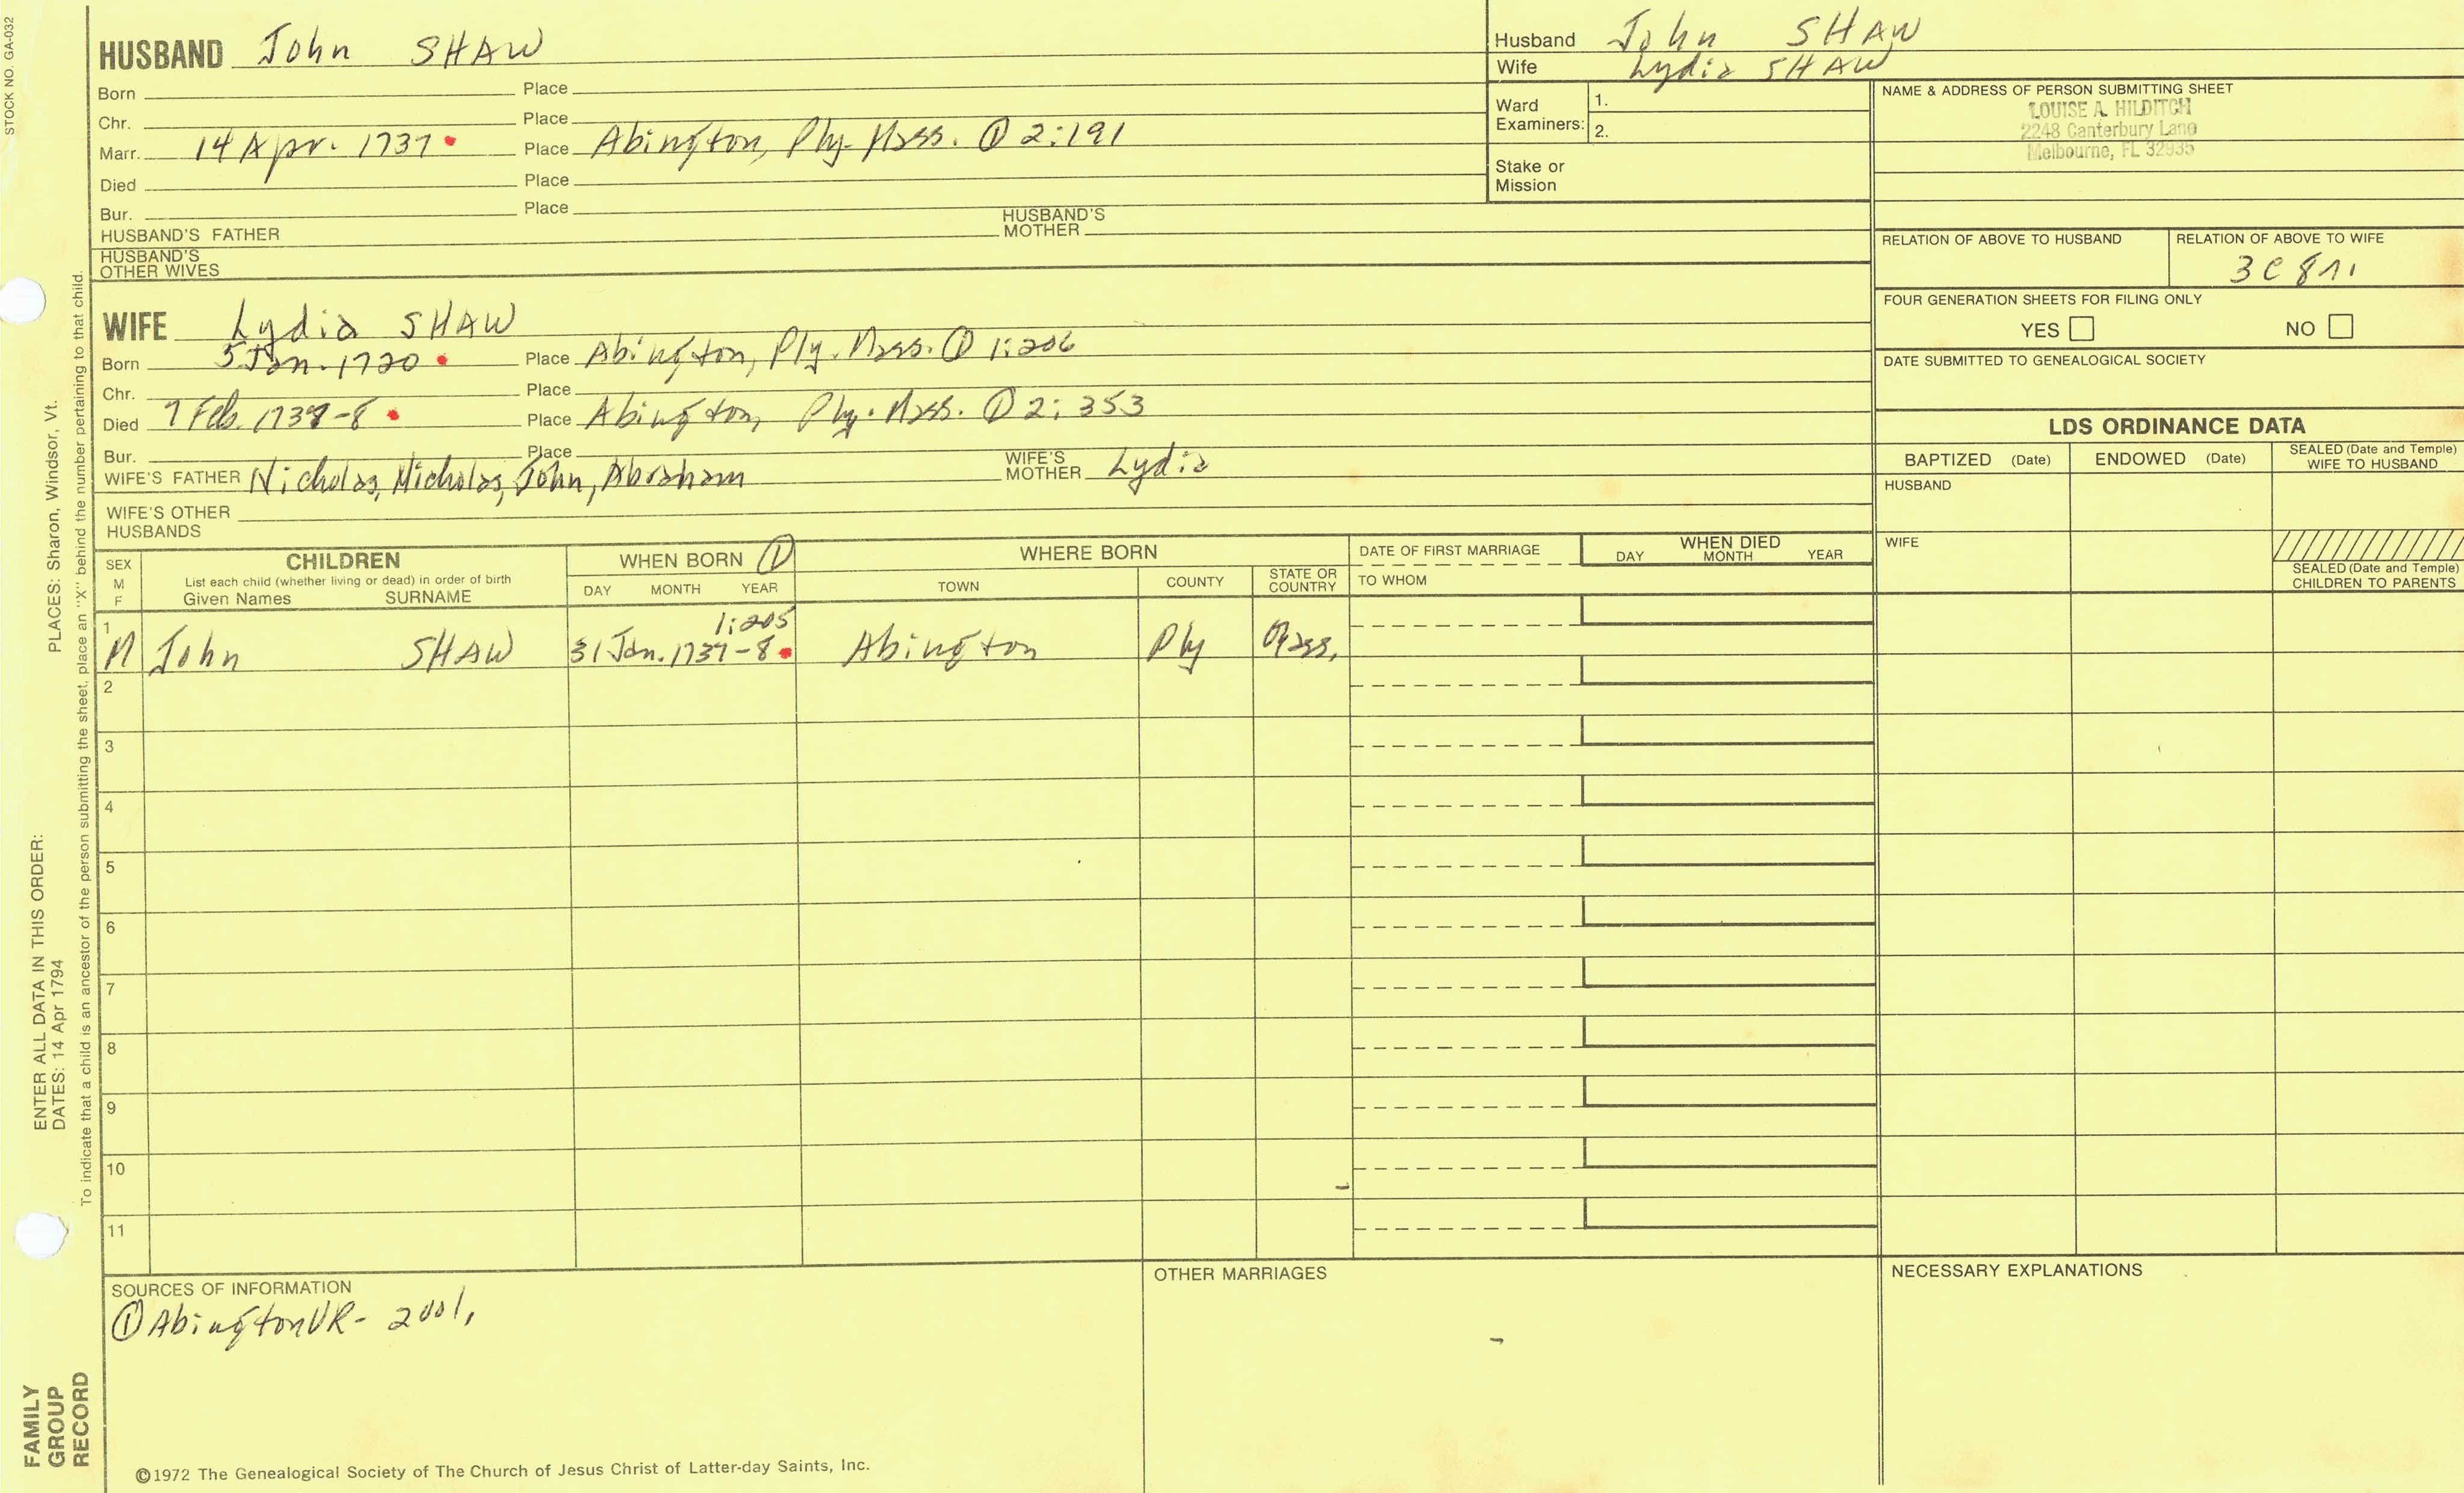 STOCK NO. GA-032
HUSBAND John SHAW
Born Place
Chr. Place
Marr. 14 Apr. 1737 Place Abington, Ply. Mass. ① 2:191
Died Place
Bur. Place
HUSBAND'S FATHER HUSBAND'S MOTHER
HUSBAND'S OTHER WIVES
Husband John SHAW
Wife Lydia SHAW
Ward Examiners: 1.
2.
Stake or Mission
NAME & ADDRESS OF PERSON SUBMITTING SHEET
LOUISE A. HILDITCH
2248 Canterbury Lane
Melbourne, FL 32935
RELATION OF ABOVE TO HUSBAND RELATION OF ABOVE TO WIFE
3C 8r.
FOUR GENERATION SHEETS FOR FILING ONLY
YES NO
DATE SUBMITTED TO GENEALOGICAL SOCIETY
WIFE Lydia SHAW
Born 5 Jan. 1720 Place Abington, Ply. Mass. ① 1:206
Chr. Place
Died 7 Feb. 1737-8 Place Abington, Ply. Mass. ① 2:353
Bur. Place
WIFE'S FATHER Nicholas, Nicholas, John, Abraham WIFE'S MOTHER Lydia
WIFE'S OTHER HUSBANDS
LDS ORDINANCE DATA
BAPTIZED (Date) ENDOWED (Date) SEALED (Date and Temple) WIFE TO HUSBAND
HUSBAND
WIFE
SEALED (Date and Temple) CHILDREN TO PARENTS
SEX M F
CHILDREN
List each child (whether living or dead) in order of birth
Given Names SURNAME
WHEN BORN ①
DAY MONTH YEAR
WHERE BORN
TOWN COUNTY STATE OR COUNTRY
DATE OF FIRST MARRIAGE
TO WHOM
WHEN DIED
DAY MONTH YEAR
1:205
1 M John SHAW 31 Jan. 1737-8 Abington Ply Mass.
2
3
4
5
6
7
8
9
10
11
SOURCES OF INFORMATION
① Abington VR- 2001,
OTHER MARRIAGES
NECESSARY EXPLANATIONS
©1972 The Genealogical Society of The Church of Jesus Christ of Latter-day Saints, Inc.
FAMILY GROUP RECORD
ENTER ALL DATA IN THIS ORDER:
DATES: 14 Apr 1794
PLACES: Sharon, Windsor, Vt.
To indicate that a child is an ancestor of the person submitting the sheet, place an "X" behind the number pertaining to that child.